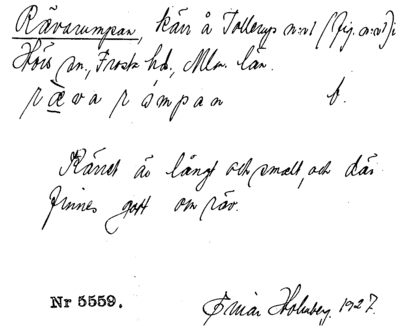 Rävarumpan, kärr å Tollerups n:r1 (fig. n:r1) i
Hörs sn., Frosta hd., Mlm. län.
rævarompan b.
Kärret är långt och smalt, och där
finnes gott om räv.
Nr 5559. Einar Holmberg. 1927.